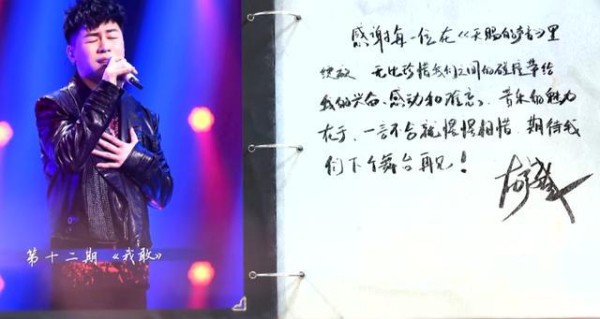 第十二期《我敢》
感谢每一位在《天赐的声音》里
绽放 无比珍惜我们之间的碰撞带给
我的兴奋、感动和难忘、音乐的魅力
在于,一言不合就惺惺相惜,期待我
们下个舞台再见!